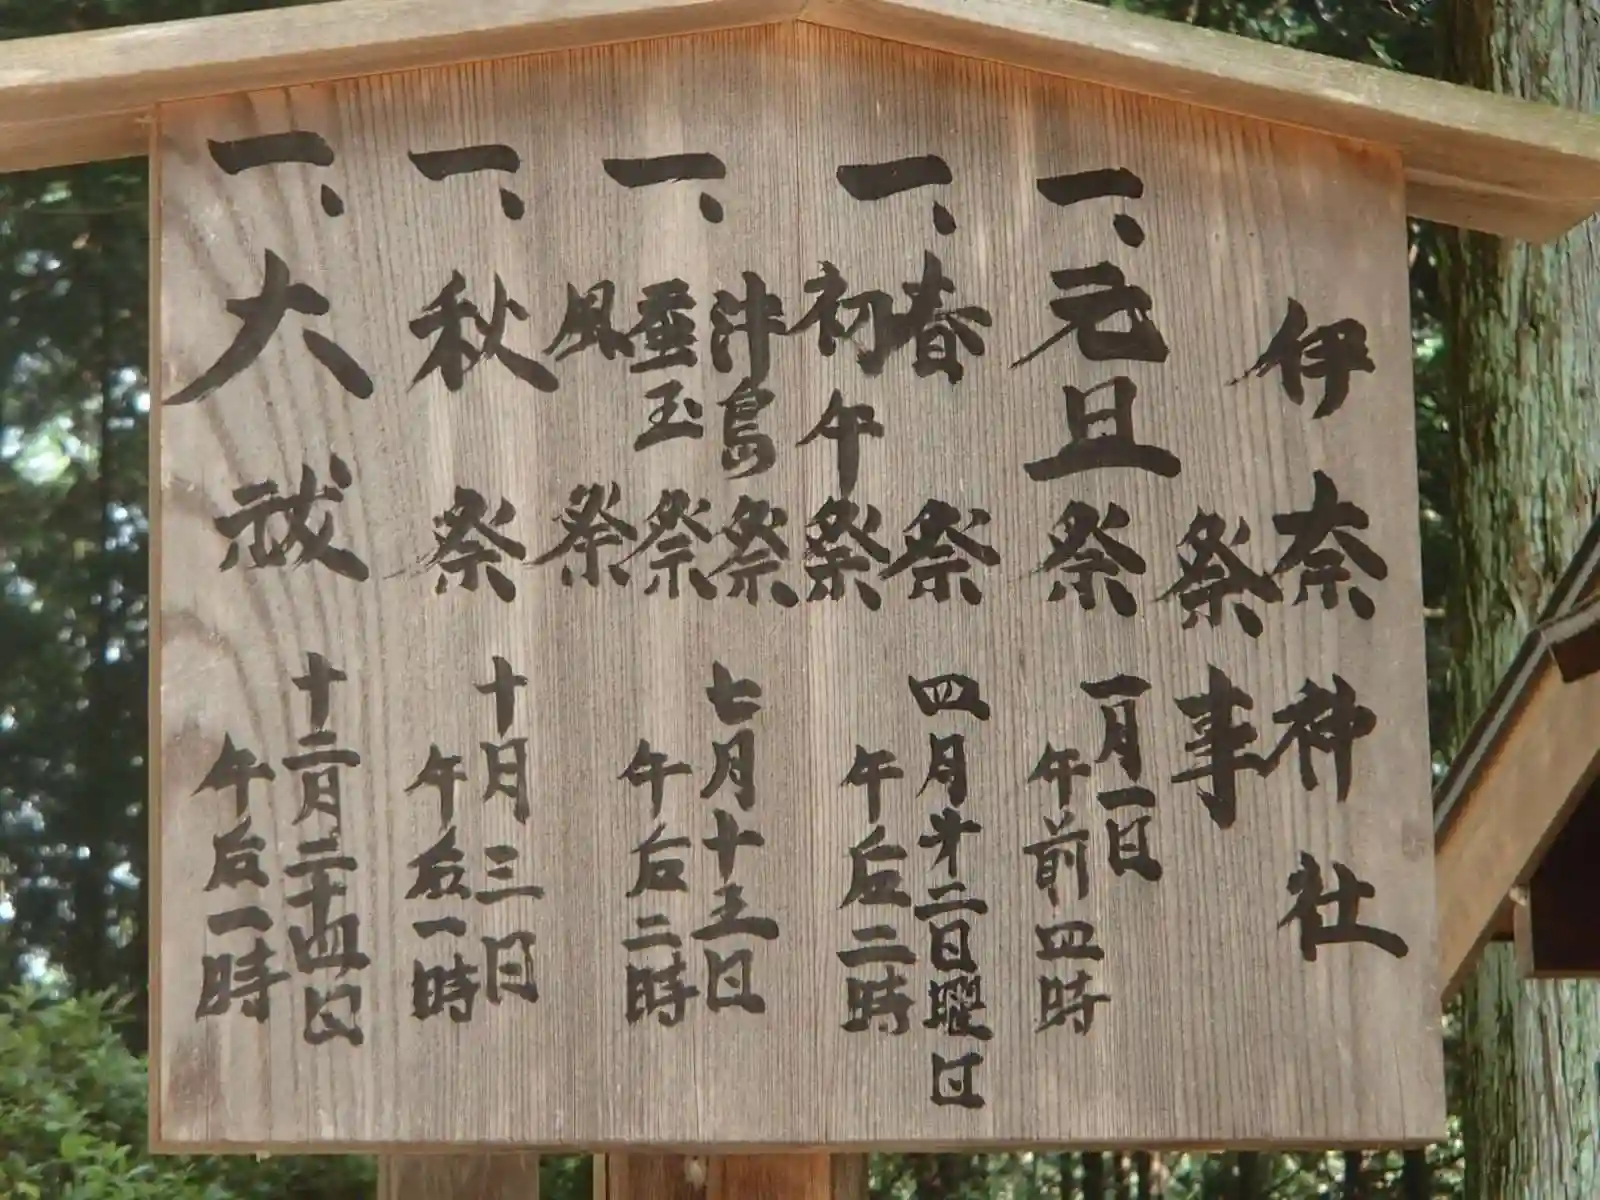 伊奈神社
祭事
一、元旦祭
一月一日
午前四時
一、春祭
初午祭
四月才二日曜日
午后二時
一、津島祭
垂玉祭
風祭
七月十五日
午后二時
一、秋祭
十月三日
午后一時
一、大祓
十二月二十四日
午后一時